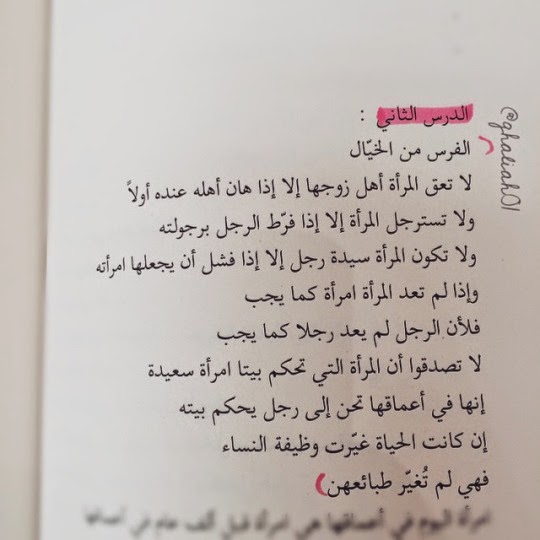 الدرس الثاني :
الفرس من الخيّال
لا تعق المرأة أهل زوجها إلا إذا هان أهله عنده أولاً
ولا تسترجل المرأة إلا إذا فرّط الرجل برجولته
ولا تكون المرأة سيدة رجل إلا إذا فشل أن يجعلها امرأته
وإذا لم تعد المرأة امرأة كما يجب
فلأن الرجل لم يعد رجلا كما يجب
لا تصدقوا أن المرأة التي تحكم بيتا امرأة سعيدة
إنها في أعماقها تحن إلى رجل يحكم بيته
إن كانت الحياة غيّرت وظيفة النساء
فهي لم تُغيّر طبائعهن
امرأة اليوم في أعماقها هي امرأة قبل ألف عام في أعماقها
@ghaliah01